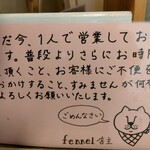 だ今、1人で営業してお
す。普段よりさらにお時間
頂くこと、お客様にご不便を
おかけすること、すみませんが何卒
よろしくお願いいたします。
ごめんなさい
fennel 店主